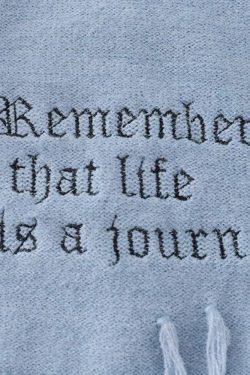 Remember
that life
Is a journ